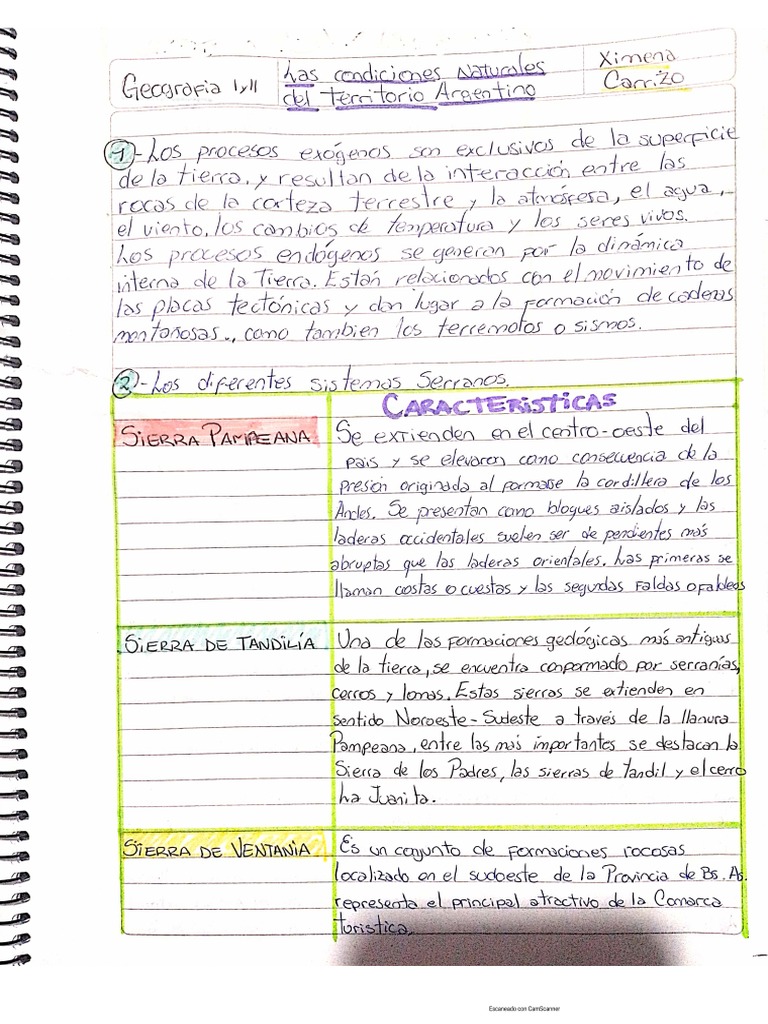 Geografia I y II
Las condiciones Naturales
del Territorio Argentino
Ximena
Carrizo
1-Los procesos exógenos son exclusivos de la superficie
de la tierra, y resultan de la interacción entre las
rocas de la corteza terrestre y la atmósfera, el agua,
el viento, los cambios de temperatura y los seres vivos.
Los procesos endógenos se generan por la dinámica
interna de la Tierra. Están relacionados con el movimiento de
las placas tectónicas y dan lugar a la formación de cadenas
montañosas., como tambien los terremotos o sismos.
2-Los diferentes sistemas Serranos.
CARACTERISTICAS
SIERRA PAMPEANA
Se extienden en el centro-oeste del
pais y se elevaron como consecuencia de la
presión originada al formarse la cordillera de los
Andes. Se presentan como bloques aislados y las
laderas occidentales suelen ser de pendientes más
abruptas que las laderas orientales. Las primeras se
llaman costas o cuestas y las segundas faldas o faldeos
SIERRA DE TANDILÍA
Una de las formaciones geológicas más antiguas
de la tierra, se encuentra conformado por serranías,
cerros y lomas. Estas sierras se extienden en
sentido Noroeste-Sudeste a través de la llanura
Pampeana, entre las más importantes se destacan la
Sierra de los Padres, las sierras de tandil y el cerro
La Juanita.
SIERRA DE VENTANIA
Es un conjunto de formaciones rocosas
localizado en el sudoeste de la Provincia de Bs. As.
representa el principal atractivo de la Comarca
turistica.
Escaneado con CamScanner